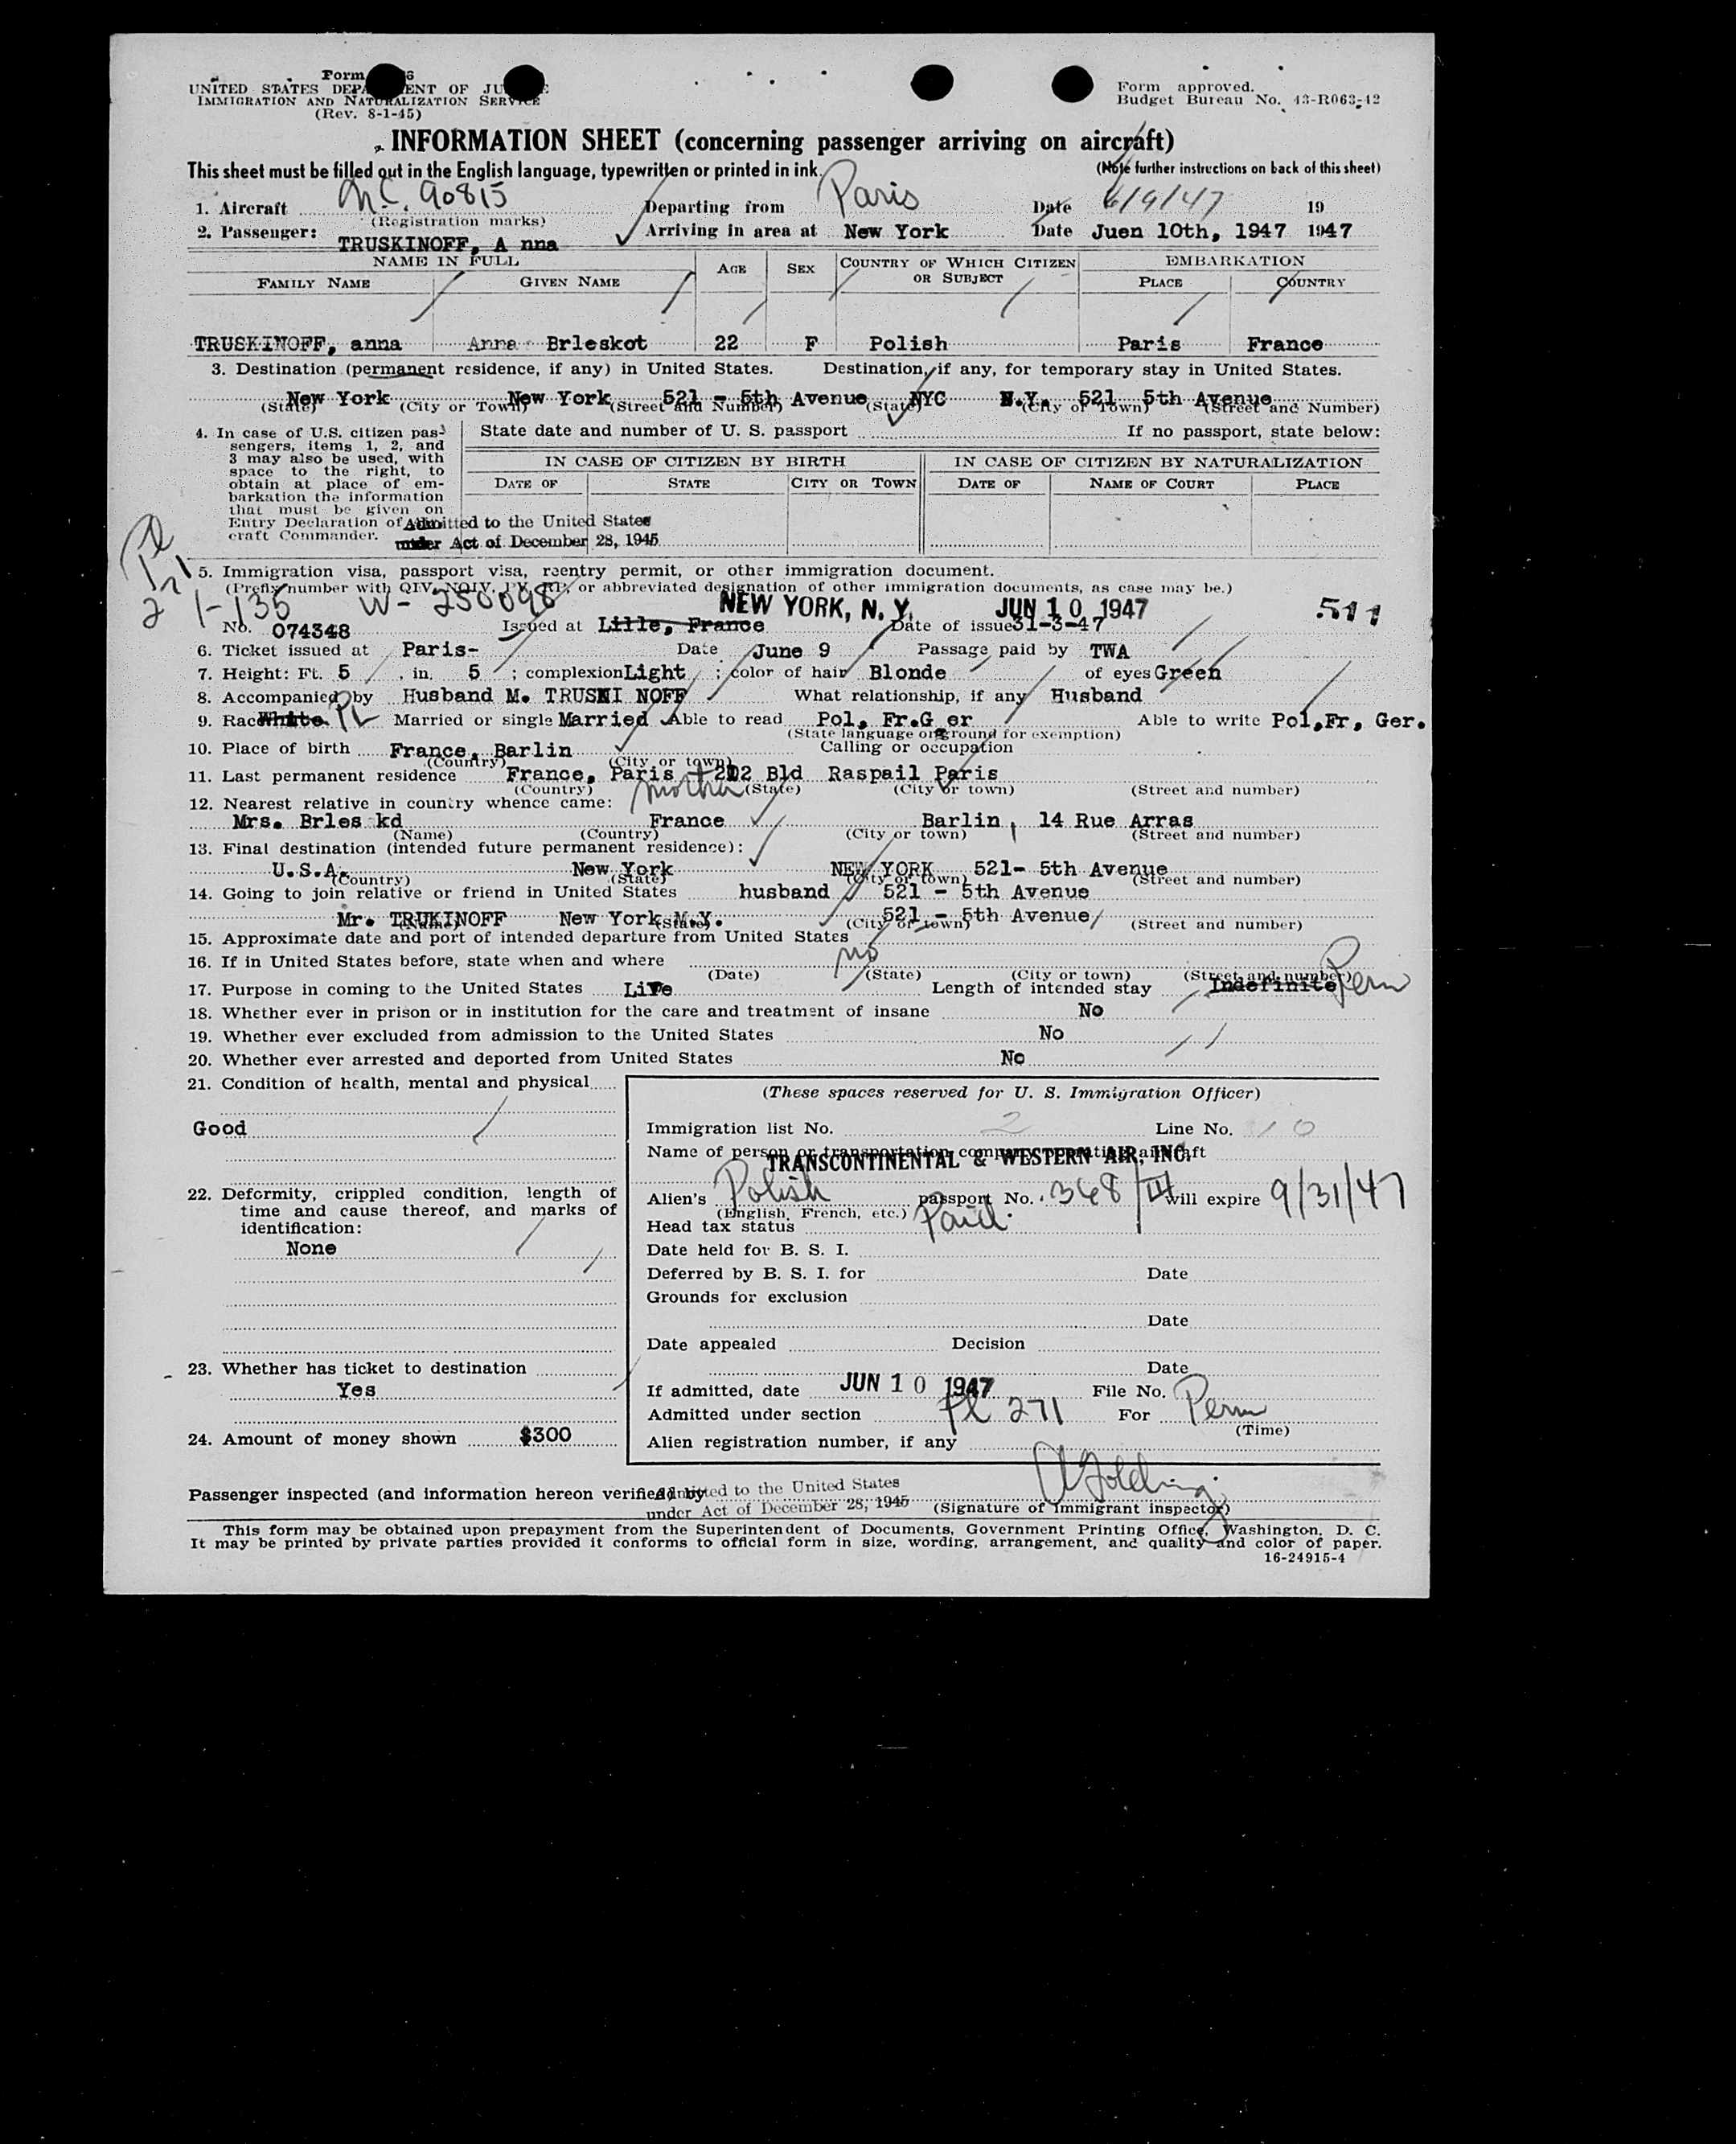 Form 6
UNITED STATES DEPA ENT OF JU E
IMMIGRATION AND NATURALIZATION SERVICE
(Rev. 8-1-45)
Form approved.
Budget Bureau No. 43-R063-42
INFORMATION SHEET (concerning passenger arriving on aircraft)
This sheet must be filled out in the English language, typewritten or printed in ink.
(Note further instructions on back of this sheet)
1. Aircraft N.C. 90815 Departing from Paris Date 6/9/47 19
(Registration marks)
2. Passenger: TRUSKINOFF, A nna Arriving in area at New York Date Juen 10th, 1947 1947
NAME IN FULL AGE SEX COUNTRY OF WHICH CITIZEN OR SUBJECT EMBARKATION
FAMILY NAME GIVEN NAME PLACE COUNTRY
TRUSKINOFF, anna Anna Brleskot 22 F Polish Paris France
3. Destination (permanent residence, if any) in United States. Destination, if any, for temporary stay in United States.
New York New York 521 - 5th Avenue NYC N.Y. 521 5th Avenue
(State) (City or Town) (Street and Number) (State) (City or Town) (Street and Number)
4. In case of U.S. citizen pas-
sengers, items 1, 2, and
3 may also be used, with
space to the right, to
obtain at place of em-
barkation the information
that must be given on
Entry Declaration of
craft Commander.
State date and number of U. S. passport If no passport, state below:
IN CASE OF CITIZEN BY BIRTH IN CASE OF CITIZEN BY NATURALIZATION
DATE OF STATE CITY OR TOWN DATE OF NAME OF COURT PLACE
Admitted to the United States
under Act of December 28, 1945
Pl
271
5. Immigration visa, passport visa, reentry permit, or other immigration document.
(Prefix number with QIV, NQIV, PV, RP, or abbreviated designation of other immigration documents, as case may be.)
1-135 W- 250098 NEW YORK, N. Y. JUN 10 1947 511
No. 074348 Issued at Lille, France Date of issue 31-3-47
6. Ticket issued at Paris- Date June 9 Passage paid by TWA
7. Height: Ft. 5, in. 5; complexion Light; color of hair Blonde of eyes Green
8. Accompanied by Husband M. TRUSKI NOFF What relationship, if any Husband
9. Race White PL Married or single Married Able to read Pol, Fr.G er Able to write Pol,Fr, Ger.
(State language or ground for exemption)
10. Place of birth France, Barlin Calling or occupation
(Country) (City or town)
11. Last permanent residence France, Paris 212 Bld Raspail Paris
(Country) (State) (City or town) (Street and number)
12. Nearest relative in country whence came: mother
Mrs. Brles kd France Barlin, 14 Rue Arras
(Name) (Country) (City or town) (Street and number)
13. Final destination (intended future permanent residence):
U.S.A. New York NEW YORK 521- 5th Avenue
(Country) (State) (City or town) (Street and number)
14. Going to join relative or friend in United States husband 521 - 5th Avenue
Mr. TRUKINOFF New York N.Y. 521 - 5th Avenue
(Name) (State) (City or town) (Street and number)
15. Approximate date and port of intended departure from United States
16. If in United States before, state when and where no
(Date) (State) (City or town) (Street and number)
17. Purpose in coming to the United States Live Length of intended stay Indefinite Perm
18. Whether ever in prison or in institution for the care and treatment of insane No
19. Whether ever excluded from admission to the United States No
20. Whether ever arrested and deported from United States No
21. Condition of health, mental and physical
Good
22. Deformity, crippled condition, length of
time and cause thereof, and marks of
identification:
None
23. Whether has ticket to destination
Yes
24. Amount of money shown $300
(These spaces reserved for U. S. Immigration Officer)
Immigration list No. 2 Line No. 10
Name of person or transportation company operating aircraft
TRANSCONTINENTAL & WESTERN AIR, INC.
Alien's Polish passport No. 368/III will expire 9/31/47
(English, French, etc.)
Head tax status Paid
Date held for B. S. I.
Deferred by B. S. I. for Date
Grounds for exclusion
Date
Date appealed Decision
Date
If admitted, date JUN 10 1947 File No.
Admitted under section Pl 271 For Perm
(Time)
Alien registration number, if any
Passenger inspected (and information hereon verified) by
Admitted to the United States
under Act of December 28, 1945
(Signature of immigrant inspector)
This form may be obtained upon prepayment from the Superintendent of Documents, Government Printing Office, Washington, D. C.
It may be printed by private parties provided it conforms to official form in size, wording, arrangement, and quality and color of paper.
16-24915-4